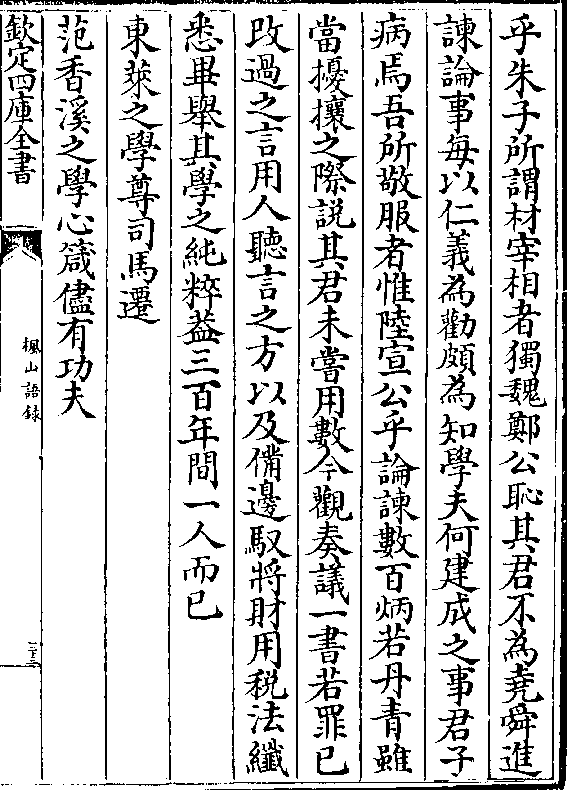 乎朱子所謂材宰相者獨魏鄭公恥其君不為堯舜進
諫論事每以仁義為勸頗為知學夫何建成之事君子
病焉吾所敬服者惟陸宣公乎論諫數百炳若丹青雖
當擾攘之際說其君未嘗用數今觀奏議一書若罪已
改過之言用人聽言之方以及備邊馭將財用税法纖
悉畢舉其學之純粹葢三百年間一人而已
東萊之學尊司馬遷
范香溪之學心箴儘有功夫
欽定四庫全書
楓山語録